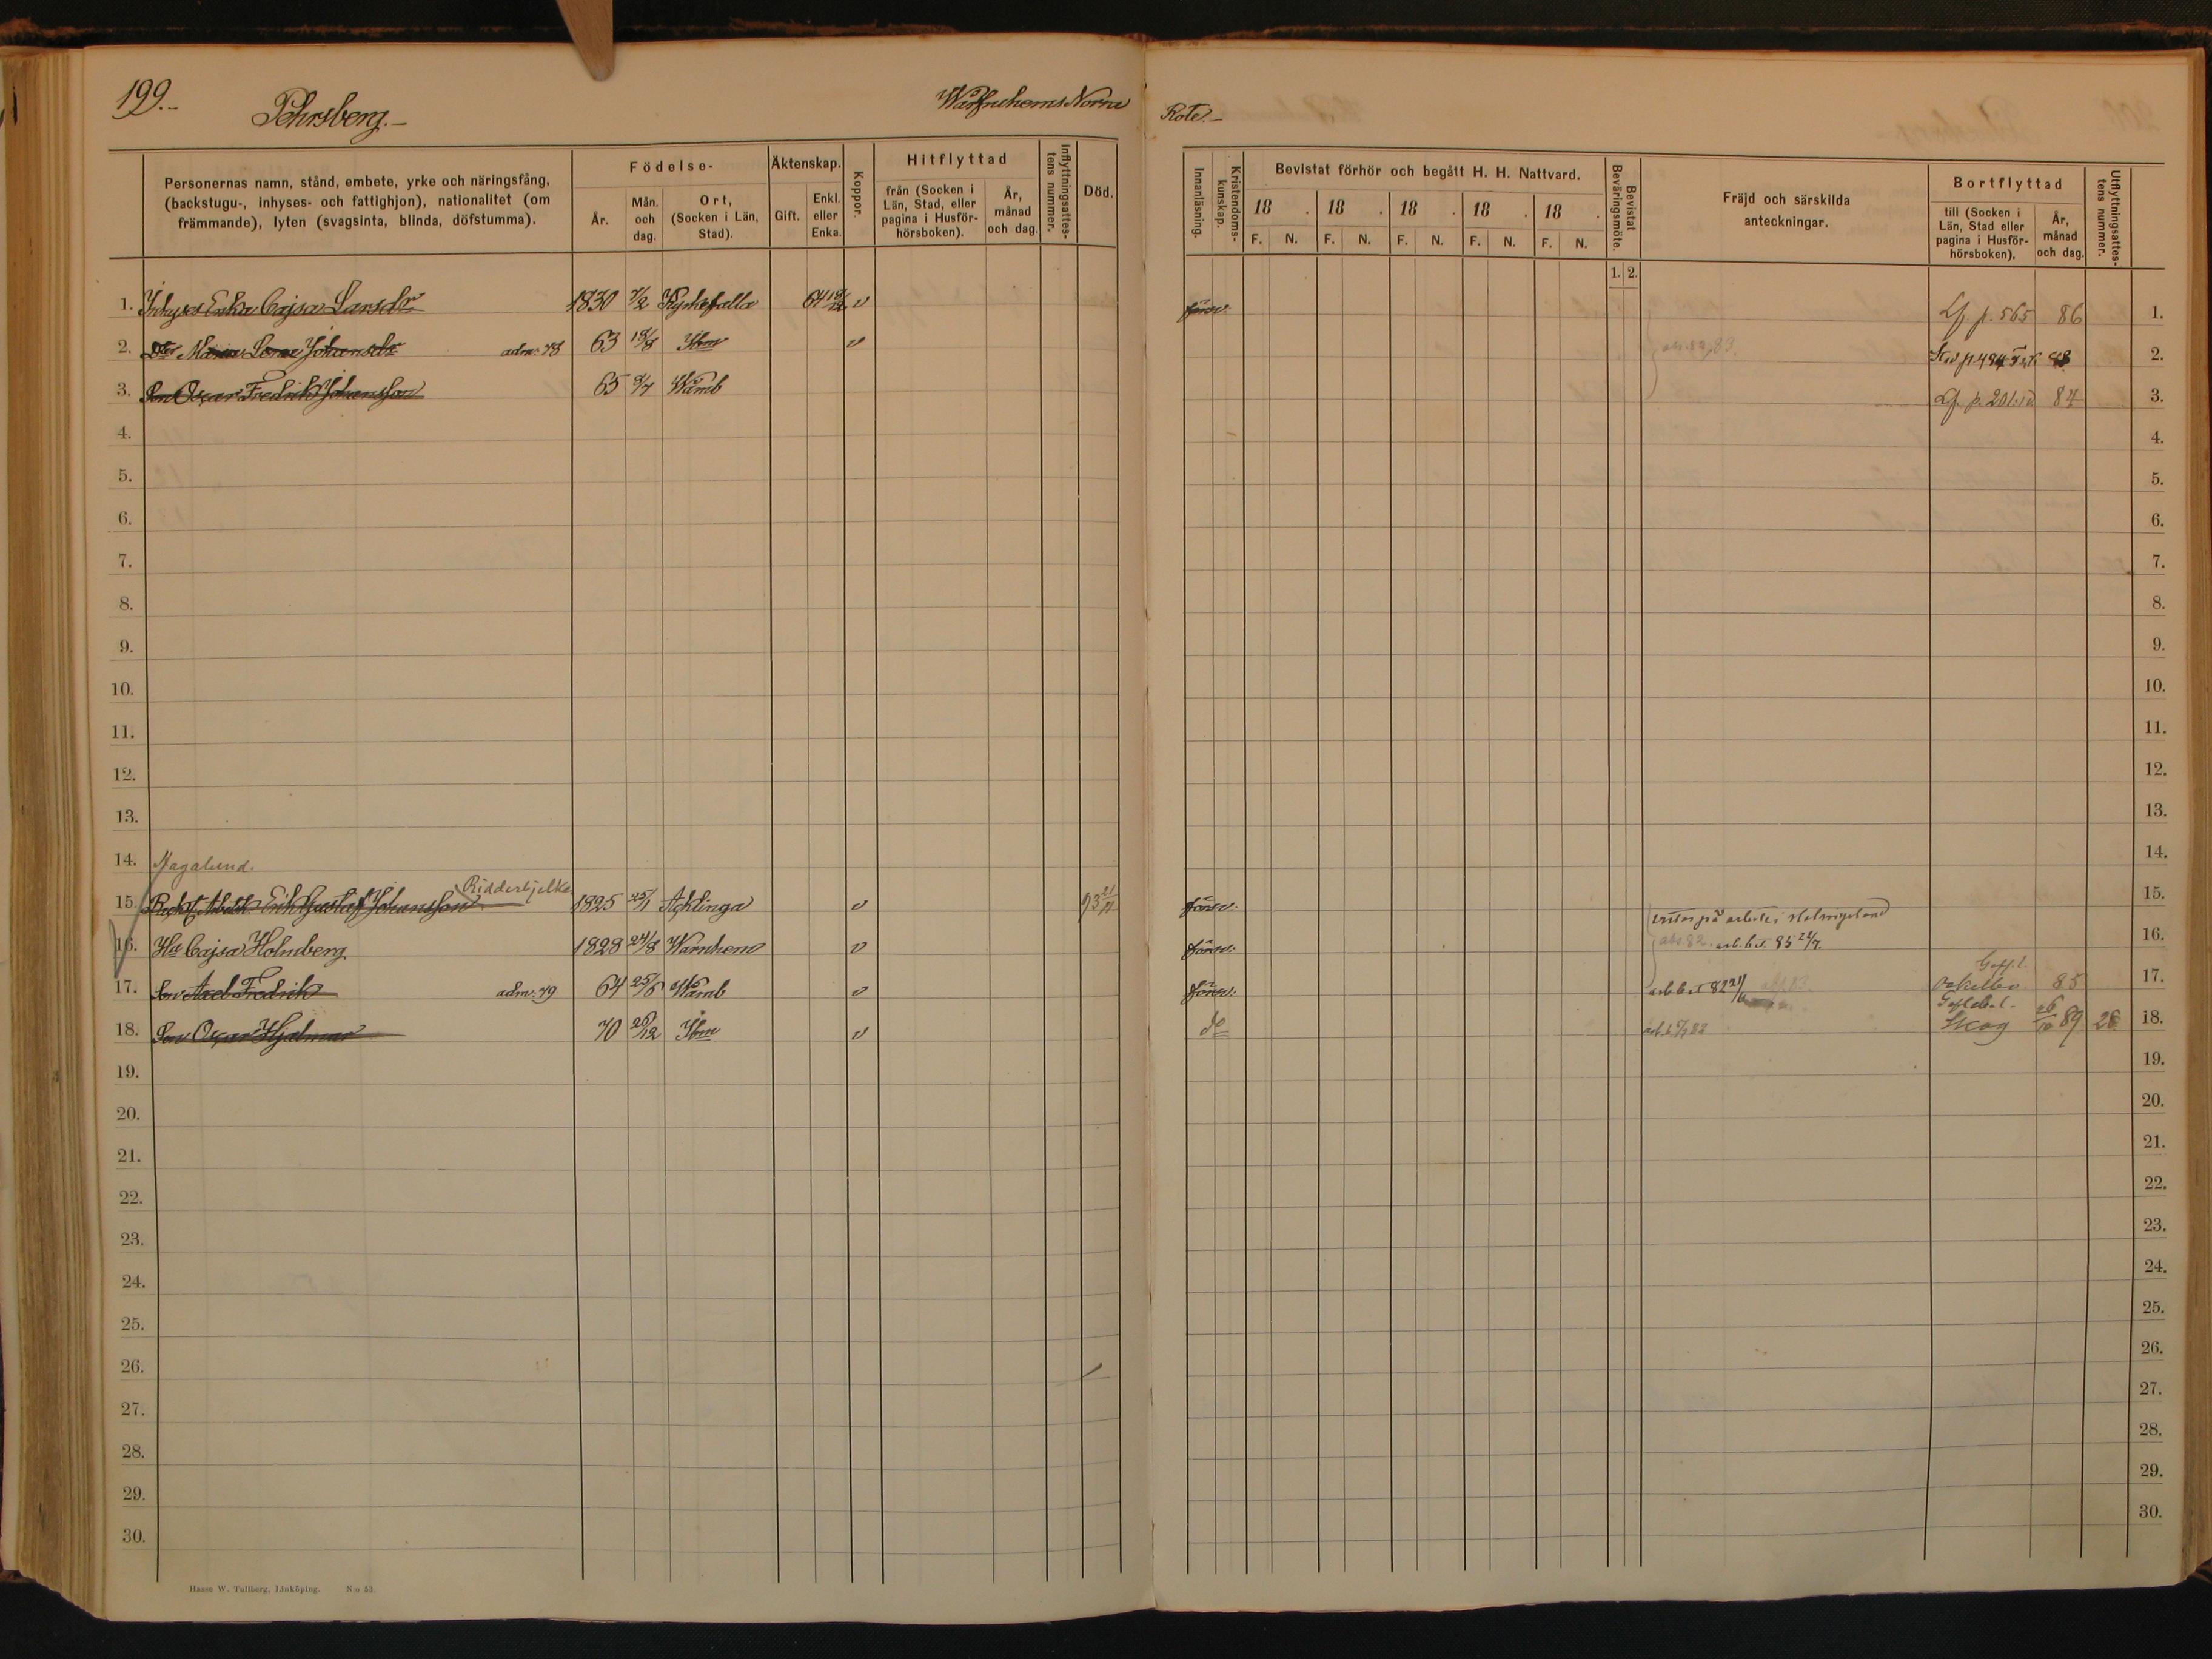 199.
Pehrsberg.
Warnhems Norra
Rote.
Personernas namn, stånd, embete, yrke och näringsfång, (backstugu-, inhyses- och fattighjon), nationalitet (om främmande), lyten (svagsinta, blinda, döfstumma).
Födelse-
År.
Mån. och dag.
Ort, (Socken i Län, Stad).
Äktenskap.
Gift.
Enkl. eller Enka.
Koppor.
Hitflyttad
från (Socken i Län, Stad, eller pagina i Husförhörsboken).
År, månad och dag.
Inflyttningsattestens nummer.
Död.
Innanläsning.
Kristendomskunskap.
Bevistat förhör och begått H. H. Nattvard.
18 . 18 . 18 . 18 . 18 .
F. N. F. N. F. N. F. N. F. N.
Bevistat Beväringsmöte.
1. 2.
Fräjd och särskilda anteckningar.
Bortflyttad
till (Socken i Län, Stad eller pagina i Husförhörsboken).
År, månad och dag.
Utflyttningsattestens nummer.
1. Inhyses Enka Cajsa Larsdr 1830 7/2 64 v försv. p. 565 86 1.
2. Dtr Maria Lena Johansdr adm. 78 63 19/8 Ibm v 2.
3. Son Oscar Fredrik Johansson 65 9/7 Wämb p. 201 84 3.
4. 4.
5. 5.
6. 6.
7. 7.
8. 8.
9. 9.
10. 10.
11. 11.
12. 12.
13. 13.
14. Hagalund. 14.
Ridderbjelke
15. Erik Gustaf Johansson 1825 25/1 Acklinga v 93 försv. på arbete i Helsingeland 15.
16. Ha Cajsa Holmberg 1828 24/8 Warnhem v försv. arb. bet. 85 16.
17. Son Axel Fredrik adm. 79 64 25/6 Wämb v försv. arb bet 82 Gefl. l. Ockelbo 85 17.
18. Son Oscar Hjalmar 70 26/12 Ibm v do Gefleb. l. Skog 26/10 89 28 18.
19. 19.
20. 20.
21. 21.
22. 22.
23. 23.
24. 24.
25. 25.
26. 26.
27. 27.
28. 28.
29. 29.
30. 30.
Hasse W. Tullberg, Linköping. N:o 53.